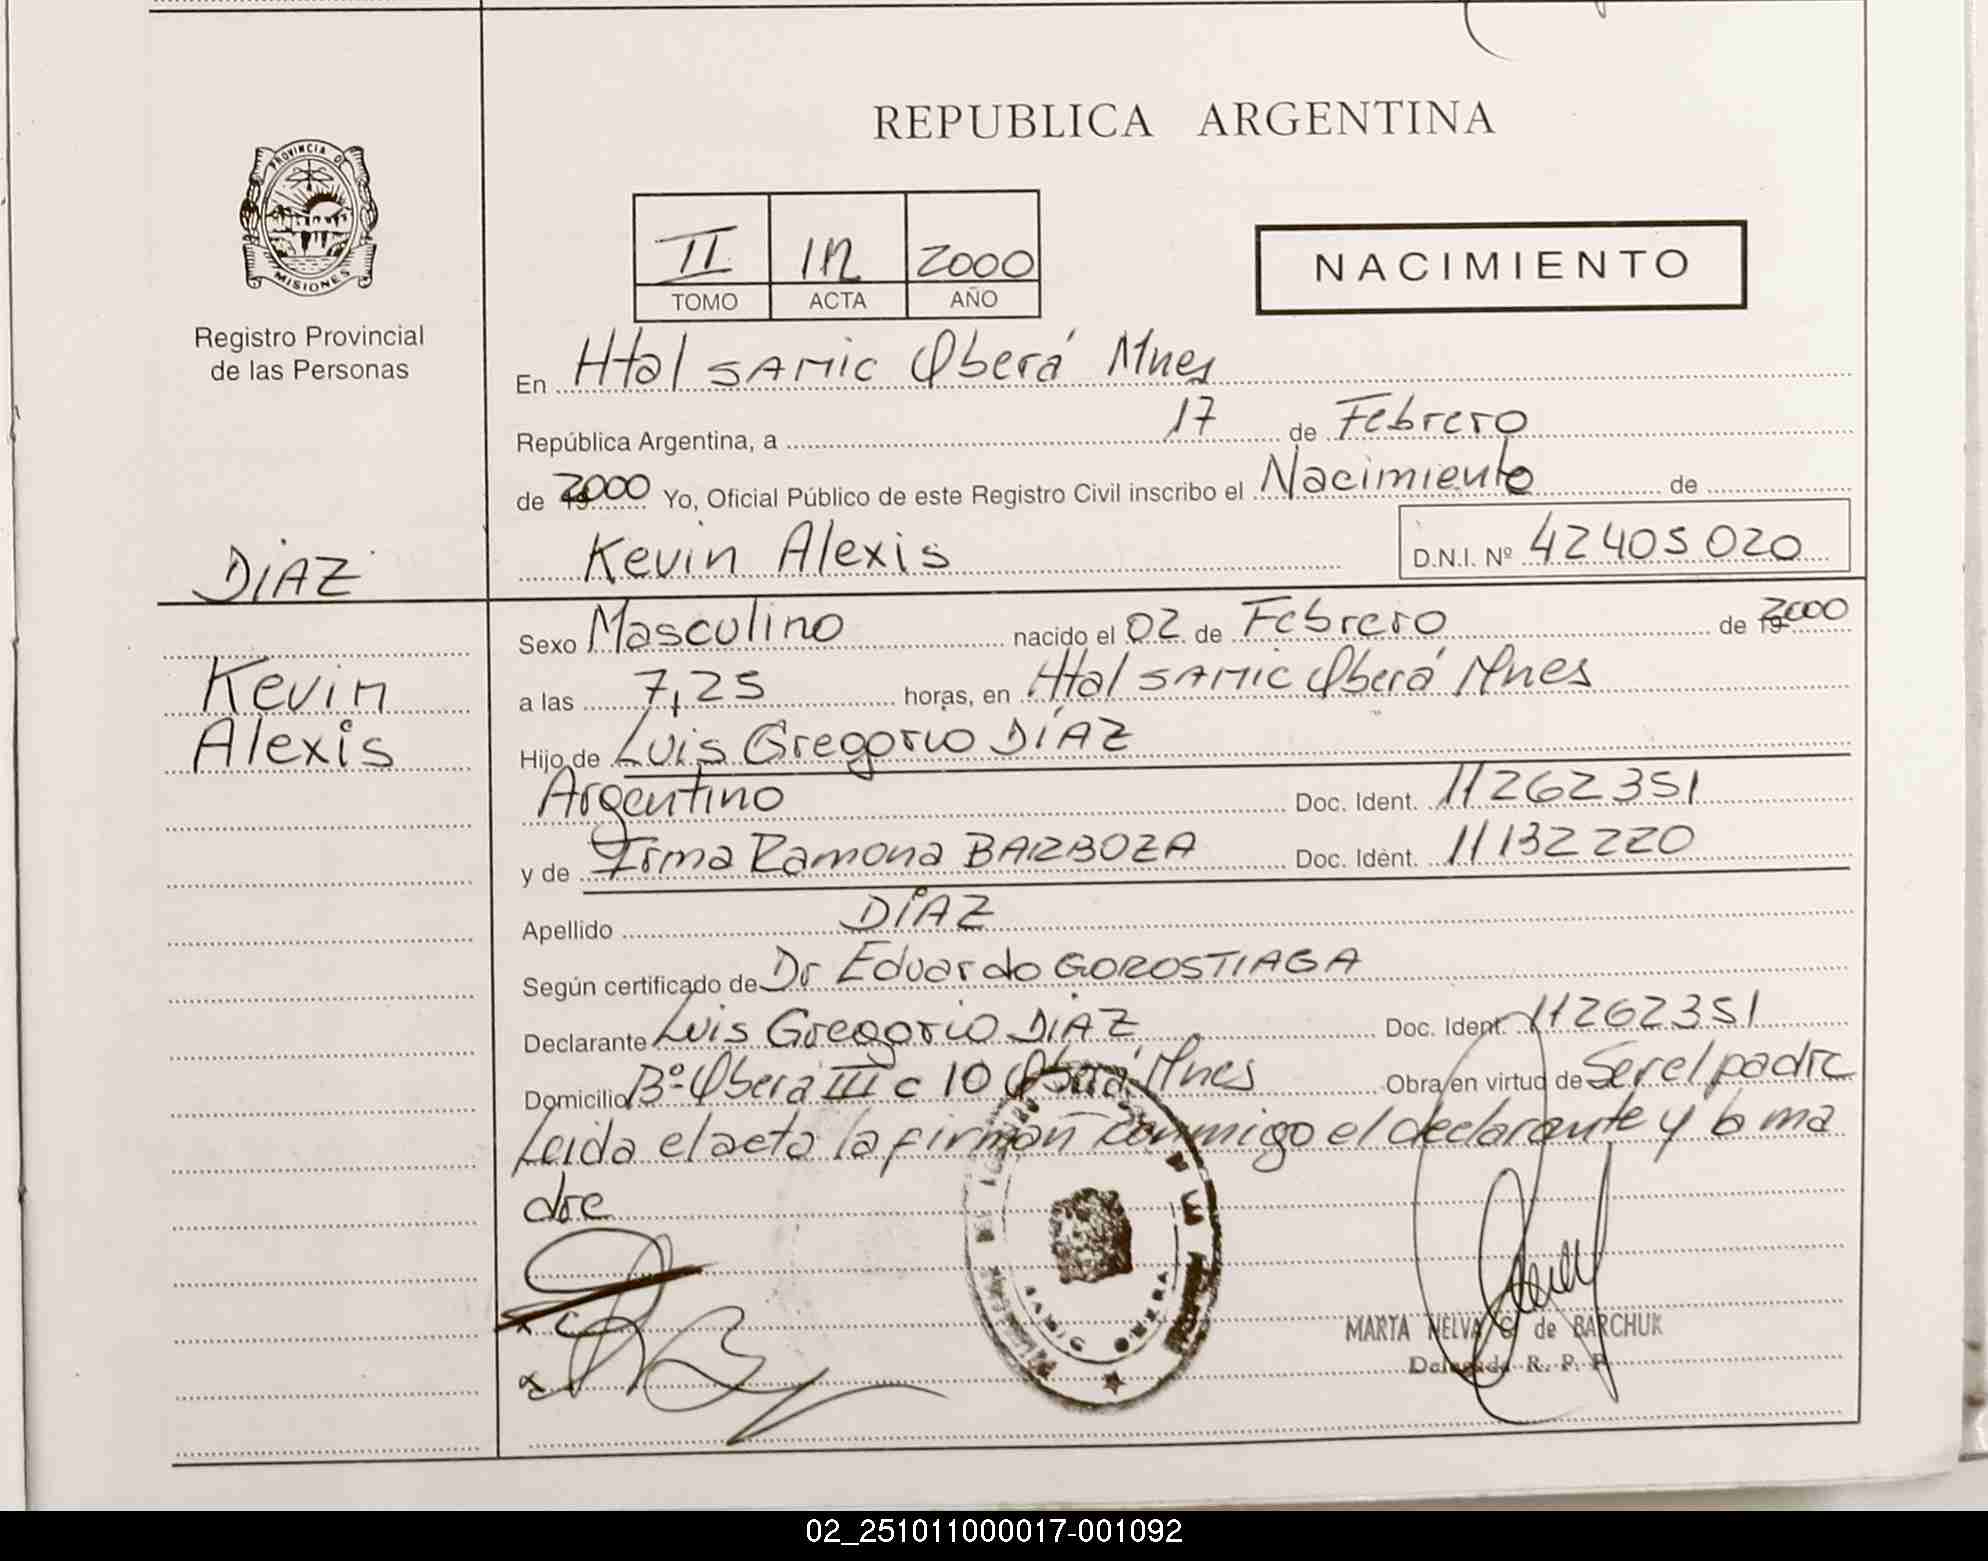 REPUBLICA ARGENTINA
PROVINCIA DE
MISIONES
Registro Provincial
de las Personas
II
2000
TOMO
ACTA
AÑO
NACIMIENTO
En Htal SAMIC Oberá Mnes
República Argentina, a 17 de Febrero
de 2000 Yo, Oficial Público de este Registro Civil inscribo el Nacimiento de
Kevin Alexis D.N.I. Nº 42405020
DÍAZ
Kevin
Alexis
Sexo Masculino nacido el 02 de Febrero de 2000
a las 7,25 horas, en Htal SAMIC Oberá Mnes
Hijo de Luis Gregorio DÍAZ
Argentino Doc. Ident. 11262351
y de Irma Ramona BARBOZA Doc. Ident. 11132220
Apellido DÍAZ
Según certificado de Dr Eduardo GOROSTIAGA
Declarante Luis Gregorio DÍAZ Doc. Ident. 11262351
Domicilio Bº Oberá III c 10 Oberá Mnes Obra en virtud de Ser el padre
Leida el acta la firman conmigo el declarante y la ma
dre
SAMIC OBERA
MARTA NELVA G. de BARCHUK
Delegada R. P. P.
02_251011000017-001092